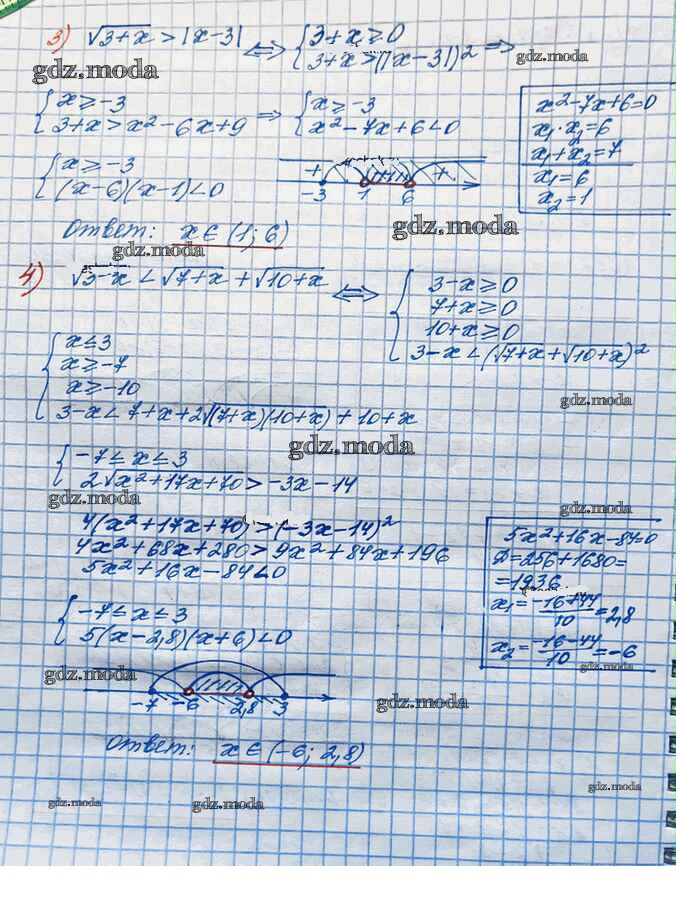 3) √3+x > |x-3| ⟺ { 3+x ≥ 0
3+x > (|x-3|)² ⟹
gdz.moda
{ x ≥ -3
3+x > x²-6x+9 ⟹ { x ≥ -3
x²-7x+6 < 0
x²-7x+6=0
x₁·x₂=6
x₁+x₂=7
x₁=6
x₂=1
{ x ≥ -3
(x-6)(x-1) < 0
+ +
-3 1 6
Ответ: x ∈ (1; 6)
gdz.moda
gdz.moda
4) √3-x < √7+x + √10+x ⟺ { 3-x ≥ 0
7+x ≥ 0
10+x ≥ 0
3-x < (√7+x+√10+x)²
{ x ≤ 3
x ≥ -7
x ≥ -10
3-x < 7+x+2√(7+x)(10+x) + 10+x
gdz.moda
gdz.moda
{ -7 ≤ x ≤ 3
2√x²+17x+70 > -3x-14
gdz.moda
gdz.moda
4(x²+17x+70) > (-3x-14)²
4x²+68x+280 > 9x²+84x+196
5x²+16x-84 < 0
5x²+16x-84=0
D=256+1680=
=1936
x₁=(-16+44)/10=2,8
x₂=(-16-44)/10=-6
{ -7 ≤ x ≤ 3
5(x-2,8)(x+6) < 0
gdz.moda
gdz.moda
gdz.moda
-7 -6 2,8 3
Ответ: x ∈ (-6; 2,8)
gdz.moda
gdz.moda
gdz.moda
gdz.moda